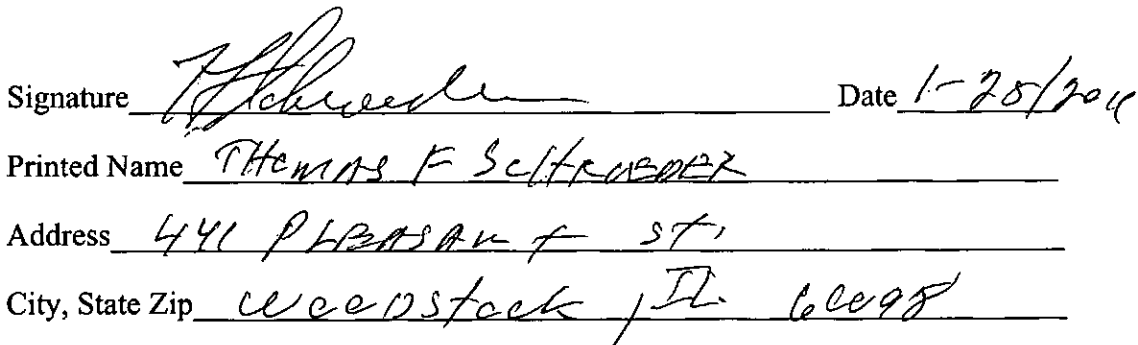 Signature TFSchroeder Date 1-25/2011
Printed Name THOMAS F SCHROEDER
Address 441 PLEASANT St.
City, State Zip WOODStock, IL. 60098